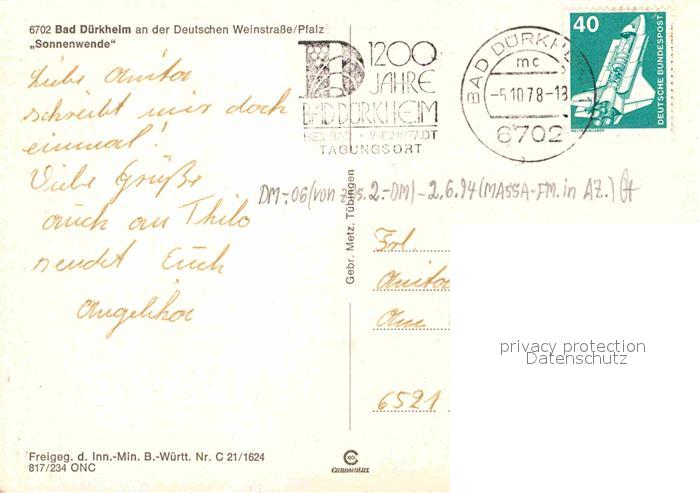 6702 Bad Dürkheim an der Deutschen Weinstraße/Pfalz
„Sonnenwende"
Liebe Anita
schreibt mir doch
einmal!
Viele Grüße
auch an Thilo
sendet Euch
Angelika
Freigeg. d. Inn.-Min. B.-Württ. Nr. C 21/1624
817/234 ONC
1200
JAHRE
BAD DÜRKHEIM
HEILBAD · WEINSTADT
TAGUNGSORT
BAD DÜRKHEIM 1
mc
-5.10.78-18
6702
40
DEUTSCHE BUNDESPOST
WELTRAUMLABOR
DM-,06 (von z.S. 2.-DM) - 2.6.94 (MASSA-FM. in AZ.)
Gebr. Metz, Tübingen
Frl.
Anita
Am
6521
privacy protection
Datenschutz
CHROMOLUX